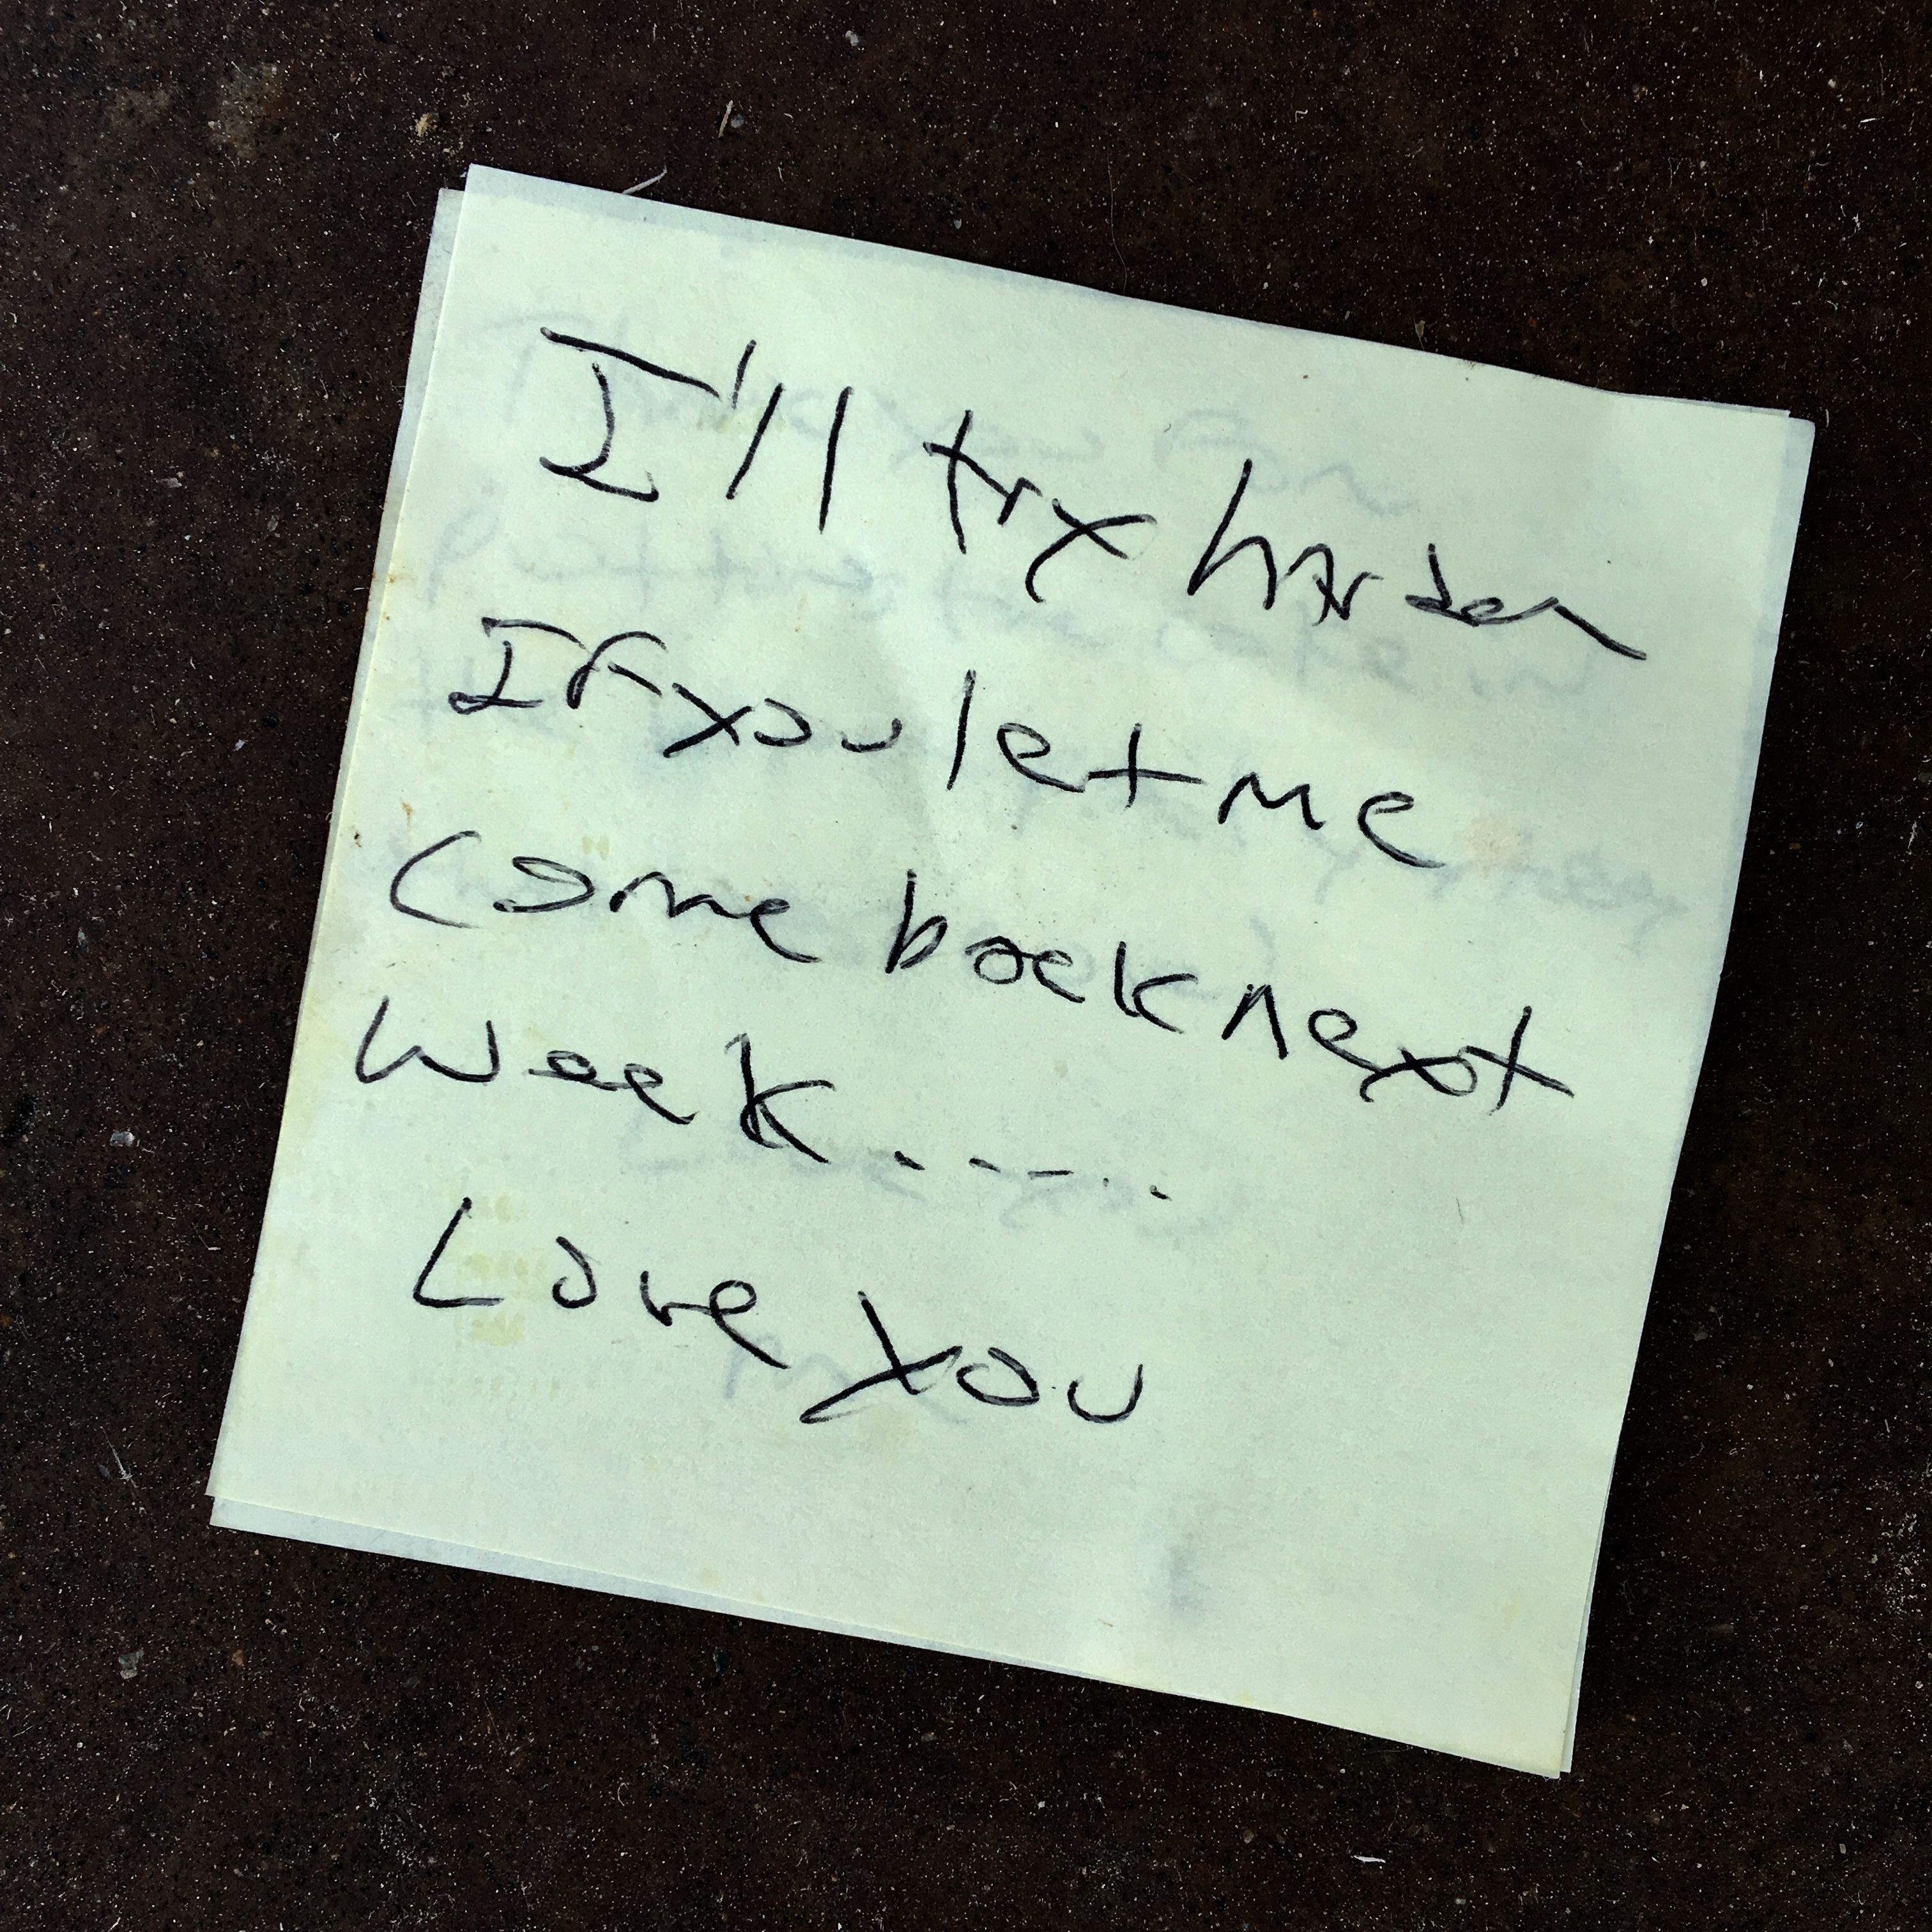 I'll try harder
If you let me
Come back next
Week.....
Love you